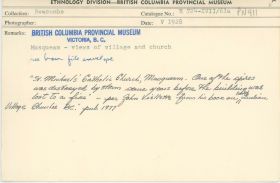 ETHNOLOGY DIVISION—BRITISH COLUMBIA PROVINCIAL MUSEUM
Collection: Newcombe
Catalogue No. PN911
Date: V 1928
Remarks: BRITISH COLUMBIA PROVINCIAL MUSEUM
VICTORIA, B. C.
Musqueam - views of village and church
see brown file envelope
"St. Michael's Catholic Church, Musqueam. One of the spires
was destroyed by storm some years before the building was
lost to a fire" - per John Veillette from his book on Indian
Village Churches BC. pub 1977